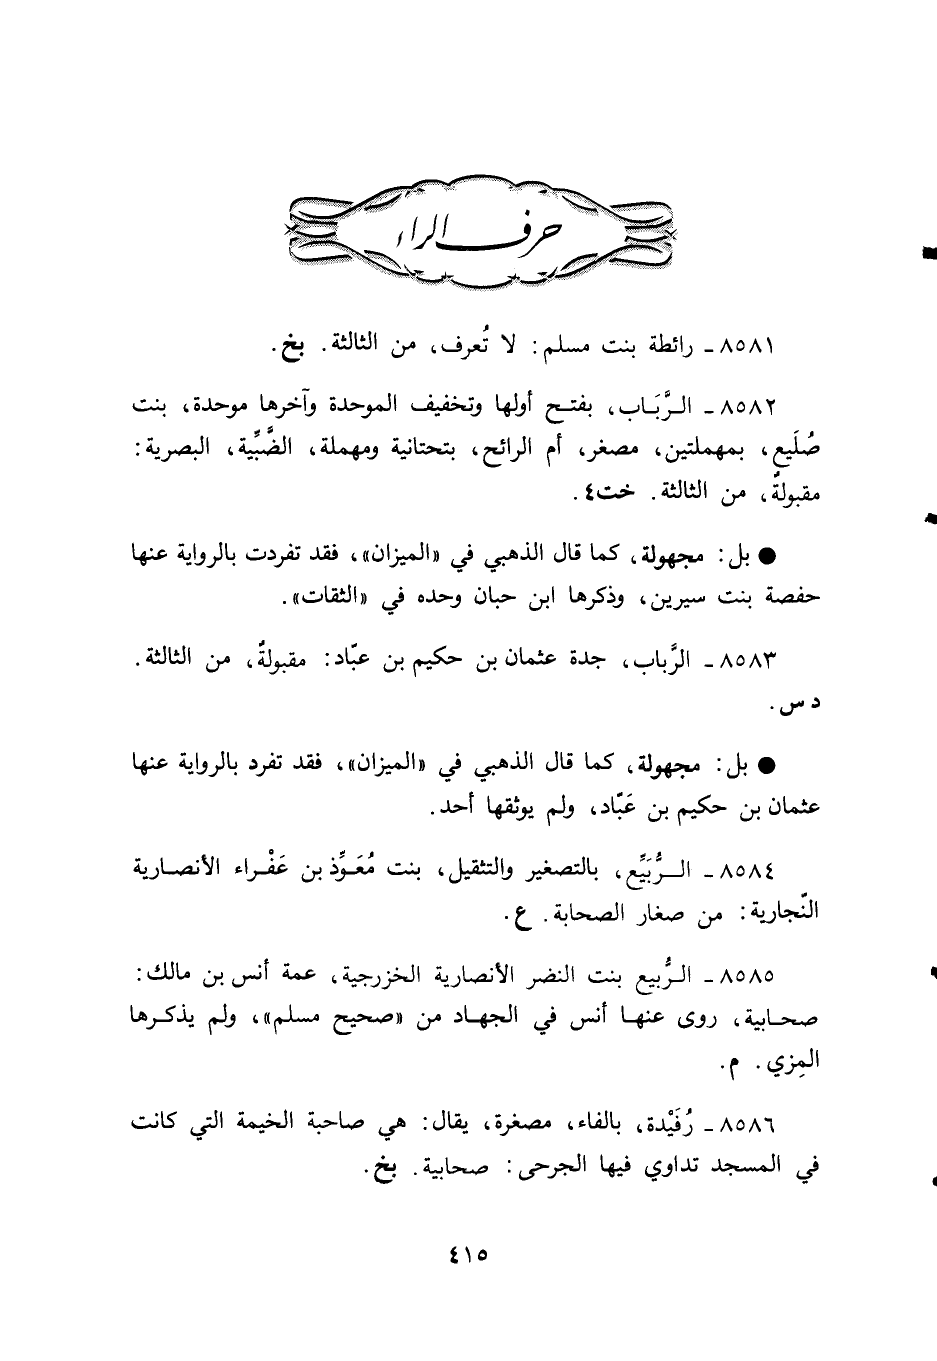 حرف الراء
٨٥٨١ ـ رائطة بنت مسلم: لا تُعرف، من الثالثة. بخ.
٨٥٨٢ ـ الـرَّبَـاب، بفتـح أولها وتخفيف الموحدة وآخرها موحدة، بنت
صُلَيع، بمهملتين، مصغر، أم الرائح، بتحتانية ومهملة، الضَّبِّية، البصرية:
مقبولةٌ، من الثالثة. خت٤.
● بل: مجهولة، كما قال الذهبي في «الميزان»، فقد تفردت بالرواية عنها
حفصة بنت سيرين، وذكرها ابن حبان وحده في «الثقات».
٨٥٨٣ ـ الرَّباب، جدة عثمان بن حكيم بن عبّاد: مقبولةٌ، من الثالثة.
د س.
● بل: مجهولة، كما قال الذهبي في «الميزان»، فقد تفرد بالرواية عنها
عثمان بن حكيم بن عَبّاد، ولم يوثقها أحد.
٨٥٨٤ ـ الـرُّبَيِّع، بالتصغير والتثقيل، بنت مُعَـوِّذ بن عَفْـراء الأنصـارية
النّجارية: من صغار الصحابة. ع.
٨٥٨٥ ـ الـرُّبيع بنت النضر الأنصارية الخزرجية، عمة أنس بن مالك:
صحـابية، روى عنهـا أنس في الجهـاد من «صحيح مسلم»، ولم يذكـرها
المِزي. م.
٨٥٨٦ ـ رُفَيْدة، بالفاء، مصغرة، يقال: هي صاحبة الخيمة التي كانت
في المسجد تداوي فيها الجرحى: صحابية. بخ.
٤١٥